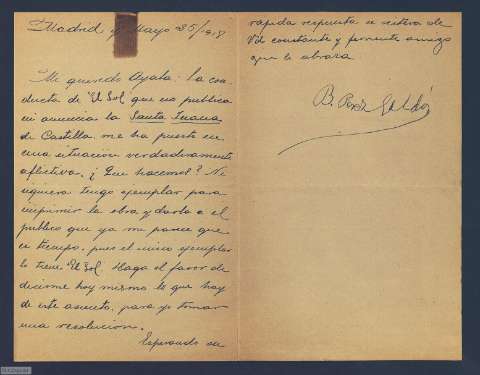 Madrid y Mayo 25/1918
Me querido Ayala: la con
ducta de "El Sol" que no publica
ni anuncia la Santa Juana
de Castilla, me ha puesto en
una situación verdaderamente
aflictiva. ¿Que hacemos? Ni
siquiera tengo ejemplar para
imprimir la obra y darla a el
publico que ya me parece que
es tiempo, pues el unico ejemplar
lo tiene "El Sol. Haga el favor de
decirme hoy mismo lo que hay
de este asunto, para yo tomar
una resolucion.
Esperando su
rápida respuesta se reitera de
Vd constante y ferviente amigo
que le abraza
B. Perez Galdós